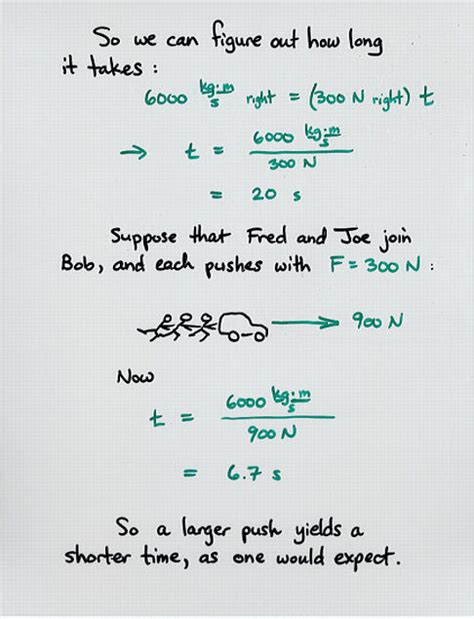 So we can figure out how long
it takes :
6000 kg·m/s right = (300 N right) t
→ t = 6000 kg·m/s / 300 N
= 20 s
Suppose that Fred and Joe join
Bob, and each pushes with F = 300 N :
→ 900 N
Now
t = 6000 kg·m/s / 900 N
= 6.7 s
So a larger push yields a
shorter time, as one would expect.